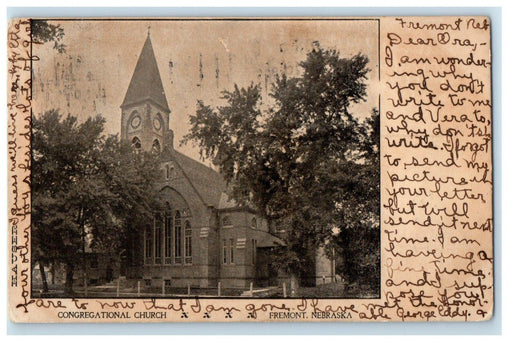 Fremont Neb
Dear Ora,-
I am wonder-
ing why
you don't
write to me
and Vera to,
why don't she
write. I forgot
to, send my
picture in
your letter
but will
send it next
time. I am
haveing a
fine time
and sup-
pose your
George Eddy.
are to now that I am gone. I have all the honor-
HAUSER
CONGREGATIONAL CHURCH
FREMONT. NEBRASKA